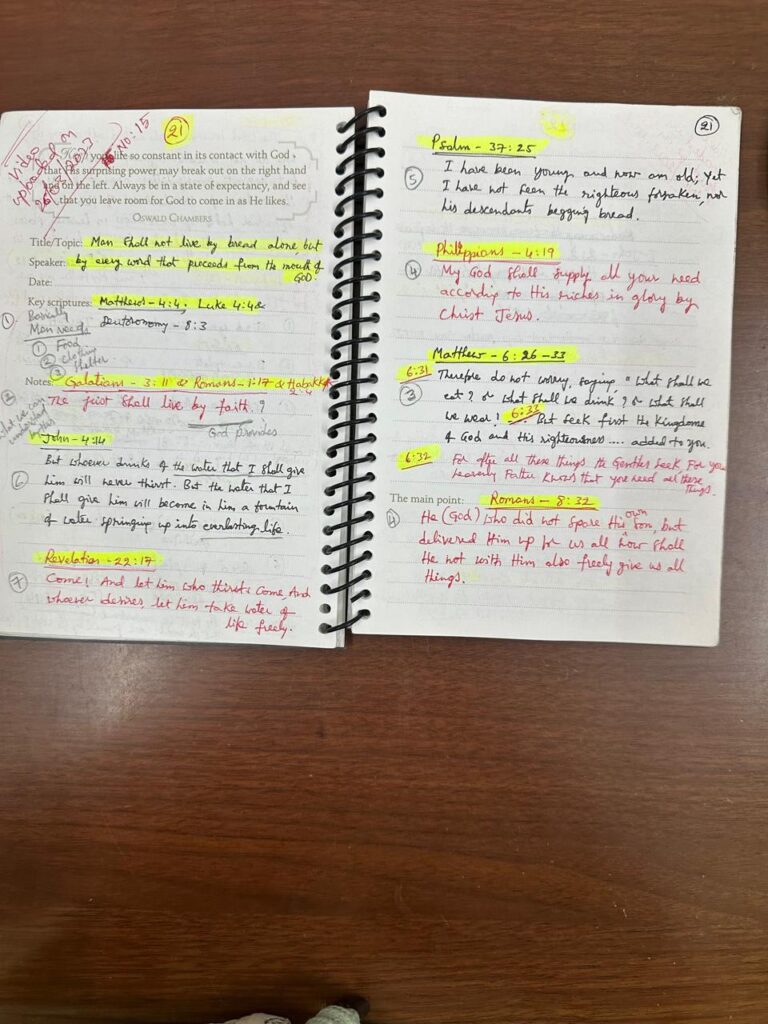 Video
uploaded on
NO: 15
21
you life so constant in its contact with God
that His surprising power may break out on the right hand
and on the left. Always be in a state of expectancy, and see
that you leave room for God to come in as He likes.
OSWALD CHAMBERS
Title/Topic: Man shall not live by bread alone, but
Speaker: by every word that proceeds from the mouth of
Date: GOD.
Key scriptures: Matthews - 4:4; Luke 4:4 &
Deutoronomy - 8:3
1
Basically
Man needs
1 Food
2 Clothing
3 Shelter
Notes: Galatians - 3:11 & Romans - 1:17 &
2
The just shall live by faith. ?
God provides
John - 4:14
6
But whoever drinks of the water that I shall give
him will never thirst. But the water that I
shall give him will become in him a fountain
of water springing up into everlasting life.
Revelation - 22:17
7
Come! And let him who thirsts come. And
whoever desires let him take water of
life freely.
21
Psalm - 37:25
5
I have been young and now am old; yet
I have not seen the righteous forsaken, nor
his descendants begging bread.
Philippians - 4:19
4
My God shall supply all your need
according to His riches in glory by
Christ Jesus.
Matthew - 6:26-33
6:31 Therefore do not worry, saying, "What shall we
3
eat? or what shall we drink? or what shall
we wear? 6:33 But seek first the Kingdome
of God and His righteousness .... added to you.
6:32 For after all these things the Gentiles seek. For your
heavenly Father knows that you need all these
things.
The main point: Romans - 8:32
4
He (God) who did not spare His own son, but
delivered Him up for us all how shall
He not with Him also freely give us all
things.